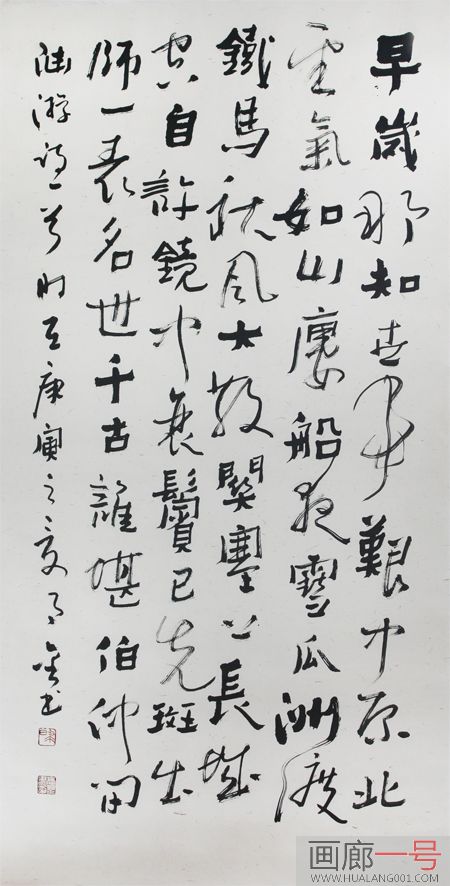 早歲那知世事艱中原北
望氣如山廔船夜雪瓜洲渡
鐵馬秋風大散關塞上長城
空自許鏡中衰鬢已先斑出
師一表名世千古誰堪伯仲間
陆游诗一首时在庚寅之夏月金书
画廊一号
WWW.HUALANG001.COM